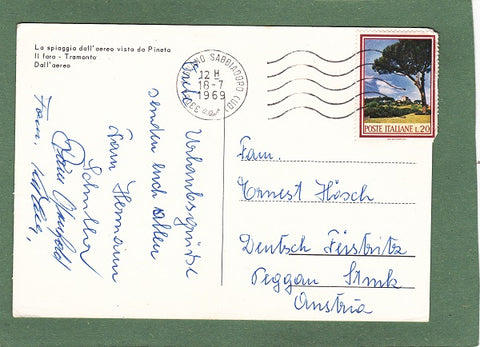 La spiaggia dell'aereo vista da Pineta
Il faro - Tramonto
Dall'aereo
SABBIADORO (UD)
12 H
18-7
1969
POSTE ITALIANE L.20
Urlaubsgrüsse
senden euch allen
Fam. Hermann
Schuller
Fam.
Fam.
Ernest Hösch
Deutsch Feistritz
Peggau Stmk
Austria